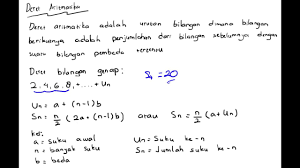 Deret Aritmatika
Deret aritmatika adalah urutan bilangan dimana bilangan
berikutnya adalah penjumlahan dari bilangan sebelumnya dengan
suatu bilangan pembeda tertentu
Deret bilangan genap:
2, 4, 6, 8, + .... + Un
S₄ = 20
Un = a + (n-1)b
Sn = n/2 (2a + (n-1)b) atau Sn = n/2 (a + Un)
ket:
a = suku awal
n = banyak suku
b = beda
Un = Suku ke-n
Sn = Jumlah suku ke-n